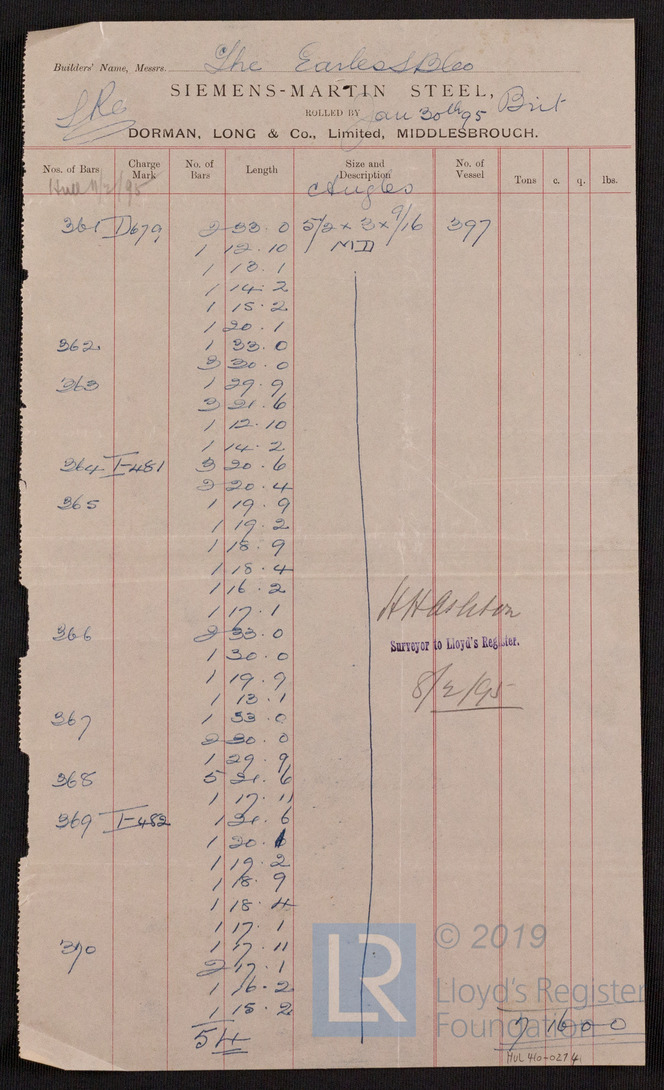 Builders' Name, Messrs. The Earles S B Co
SIEMENS-MARTIN STEEL,
ROLLED BY Jan 30th 95 Brit
DORMAN, LONG & Co., Limited, MIDDLESBROUGH.
Nos. of Bars Charge Mark No. of Bars Length Size and Description No. of Vessel Tons c. q. lbs.
Hull 11/2/95 Angles
361 I 679 2 33.0 5/2 x 3 x 9/16 397
1 12.10 MD
1 13.1
1 14.2
1 15.2
1 20.1
362 1 33.0
3 30.0
363 1 29.9
3 21.6
1 12.10
1 14.2
364 I-481 3 20.6
2 20.4
365 1 19.9
1 19.2
1 18.9
1 18.4
1 16.2
1 17.1
H H Ashton
366 2 33.0
Surveyor to Lloyd's Register.
1 30.0
1 19.9
8/2/95
1 13.1
367 1 33.0
2 30.0
1 29.9
368 5 21.6
1 17.11
369 I-482 1 21.6
1 20.6
1 19.2
1 18.9
1 18.4
1 17.1
370 1 17.11
2 17.1
1 16.2
1 15.2
54
7 16 0 0
© 2019
Lloyd's Register
Foundation
LR
HUL 410-027 4